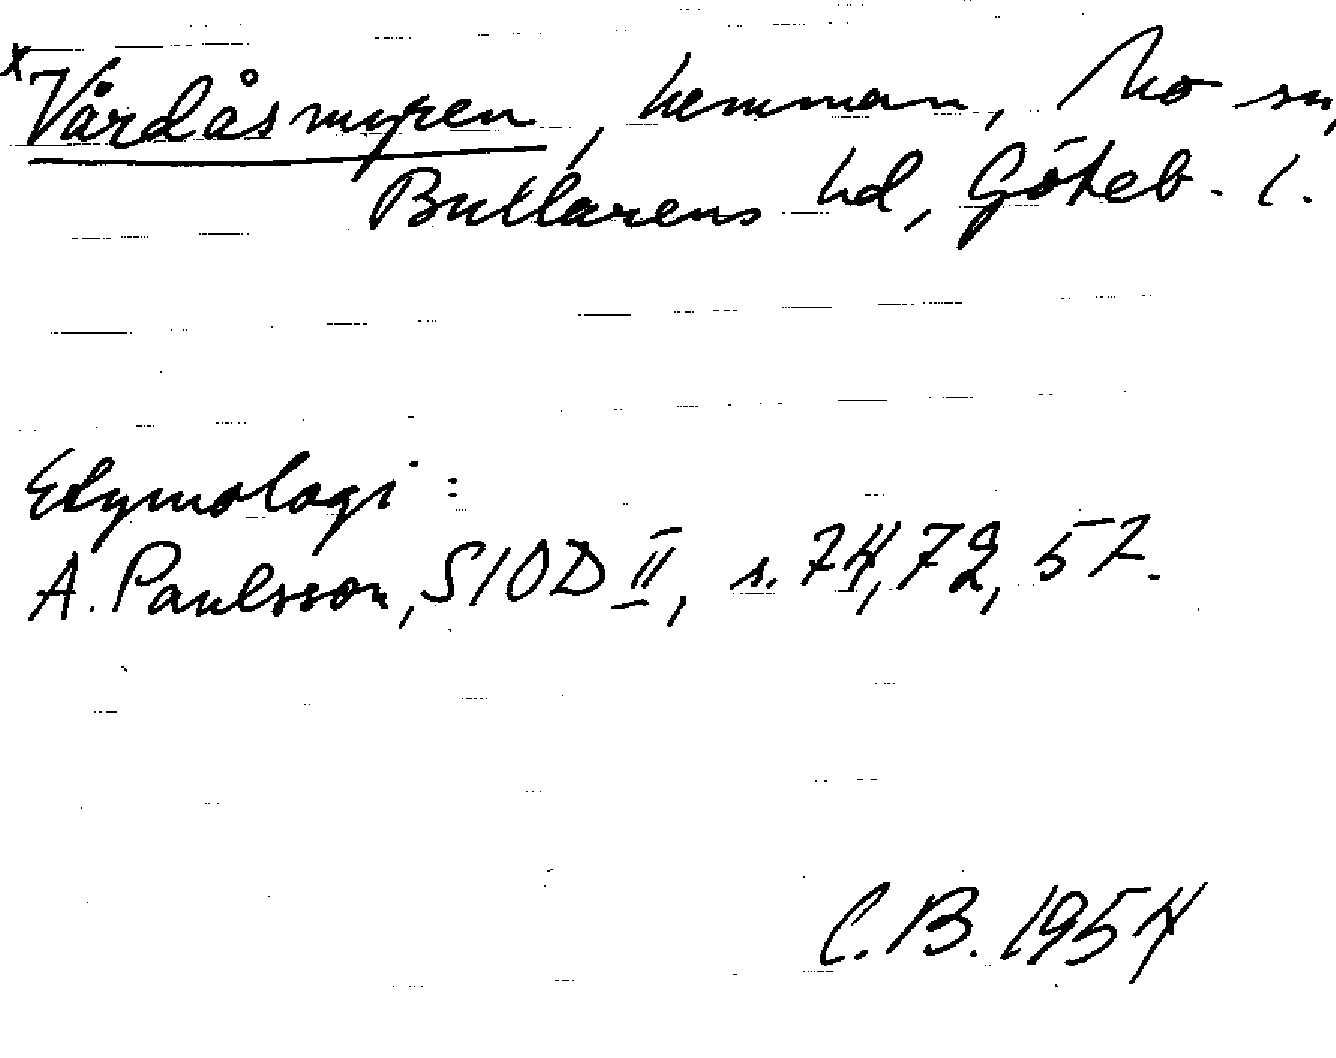 x Vårdåsmyren, hemman, Mo sn,
Bullarens hd, Göteb. l.
Etymologi:
A. Paulsson, SIOD II, s. 74, 72, 57.
C.B. 1954